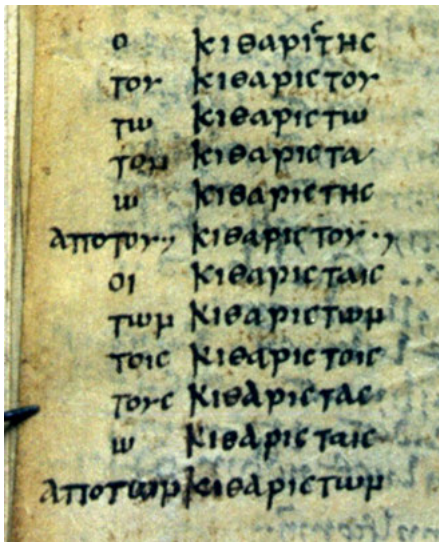 ο κιθαριϲτηϲ
του κιθαριϲτου
τω κιθαριϲτω
τον κιθαριϲτα
ω κιθαριϲτηϲ
αποτου., κιθαριϲτου.,
οι κιθαριϲταιϲ
των κιθαριϲτων
τοιϲ κιθαριϲτοιϲ
τουϲ κιθαριϲταϲ
ω κιθαριϲταιϲ
αποτων κιθαριϲτων